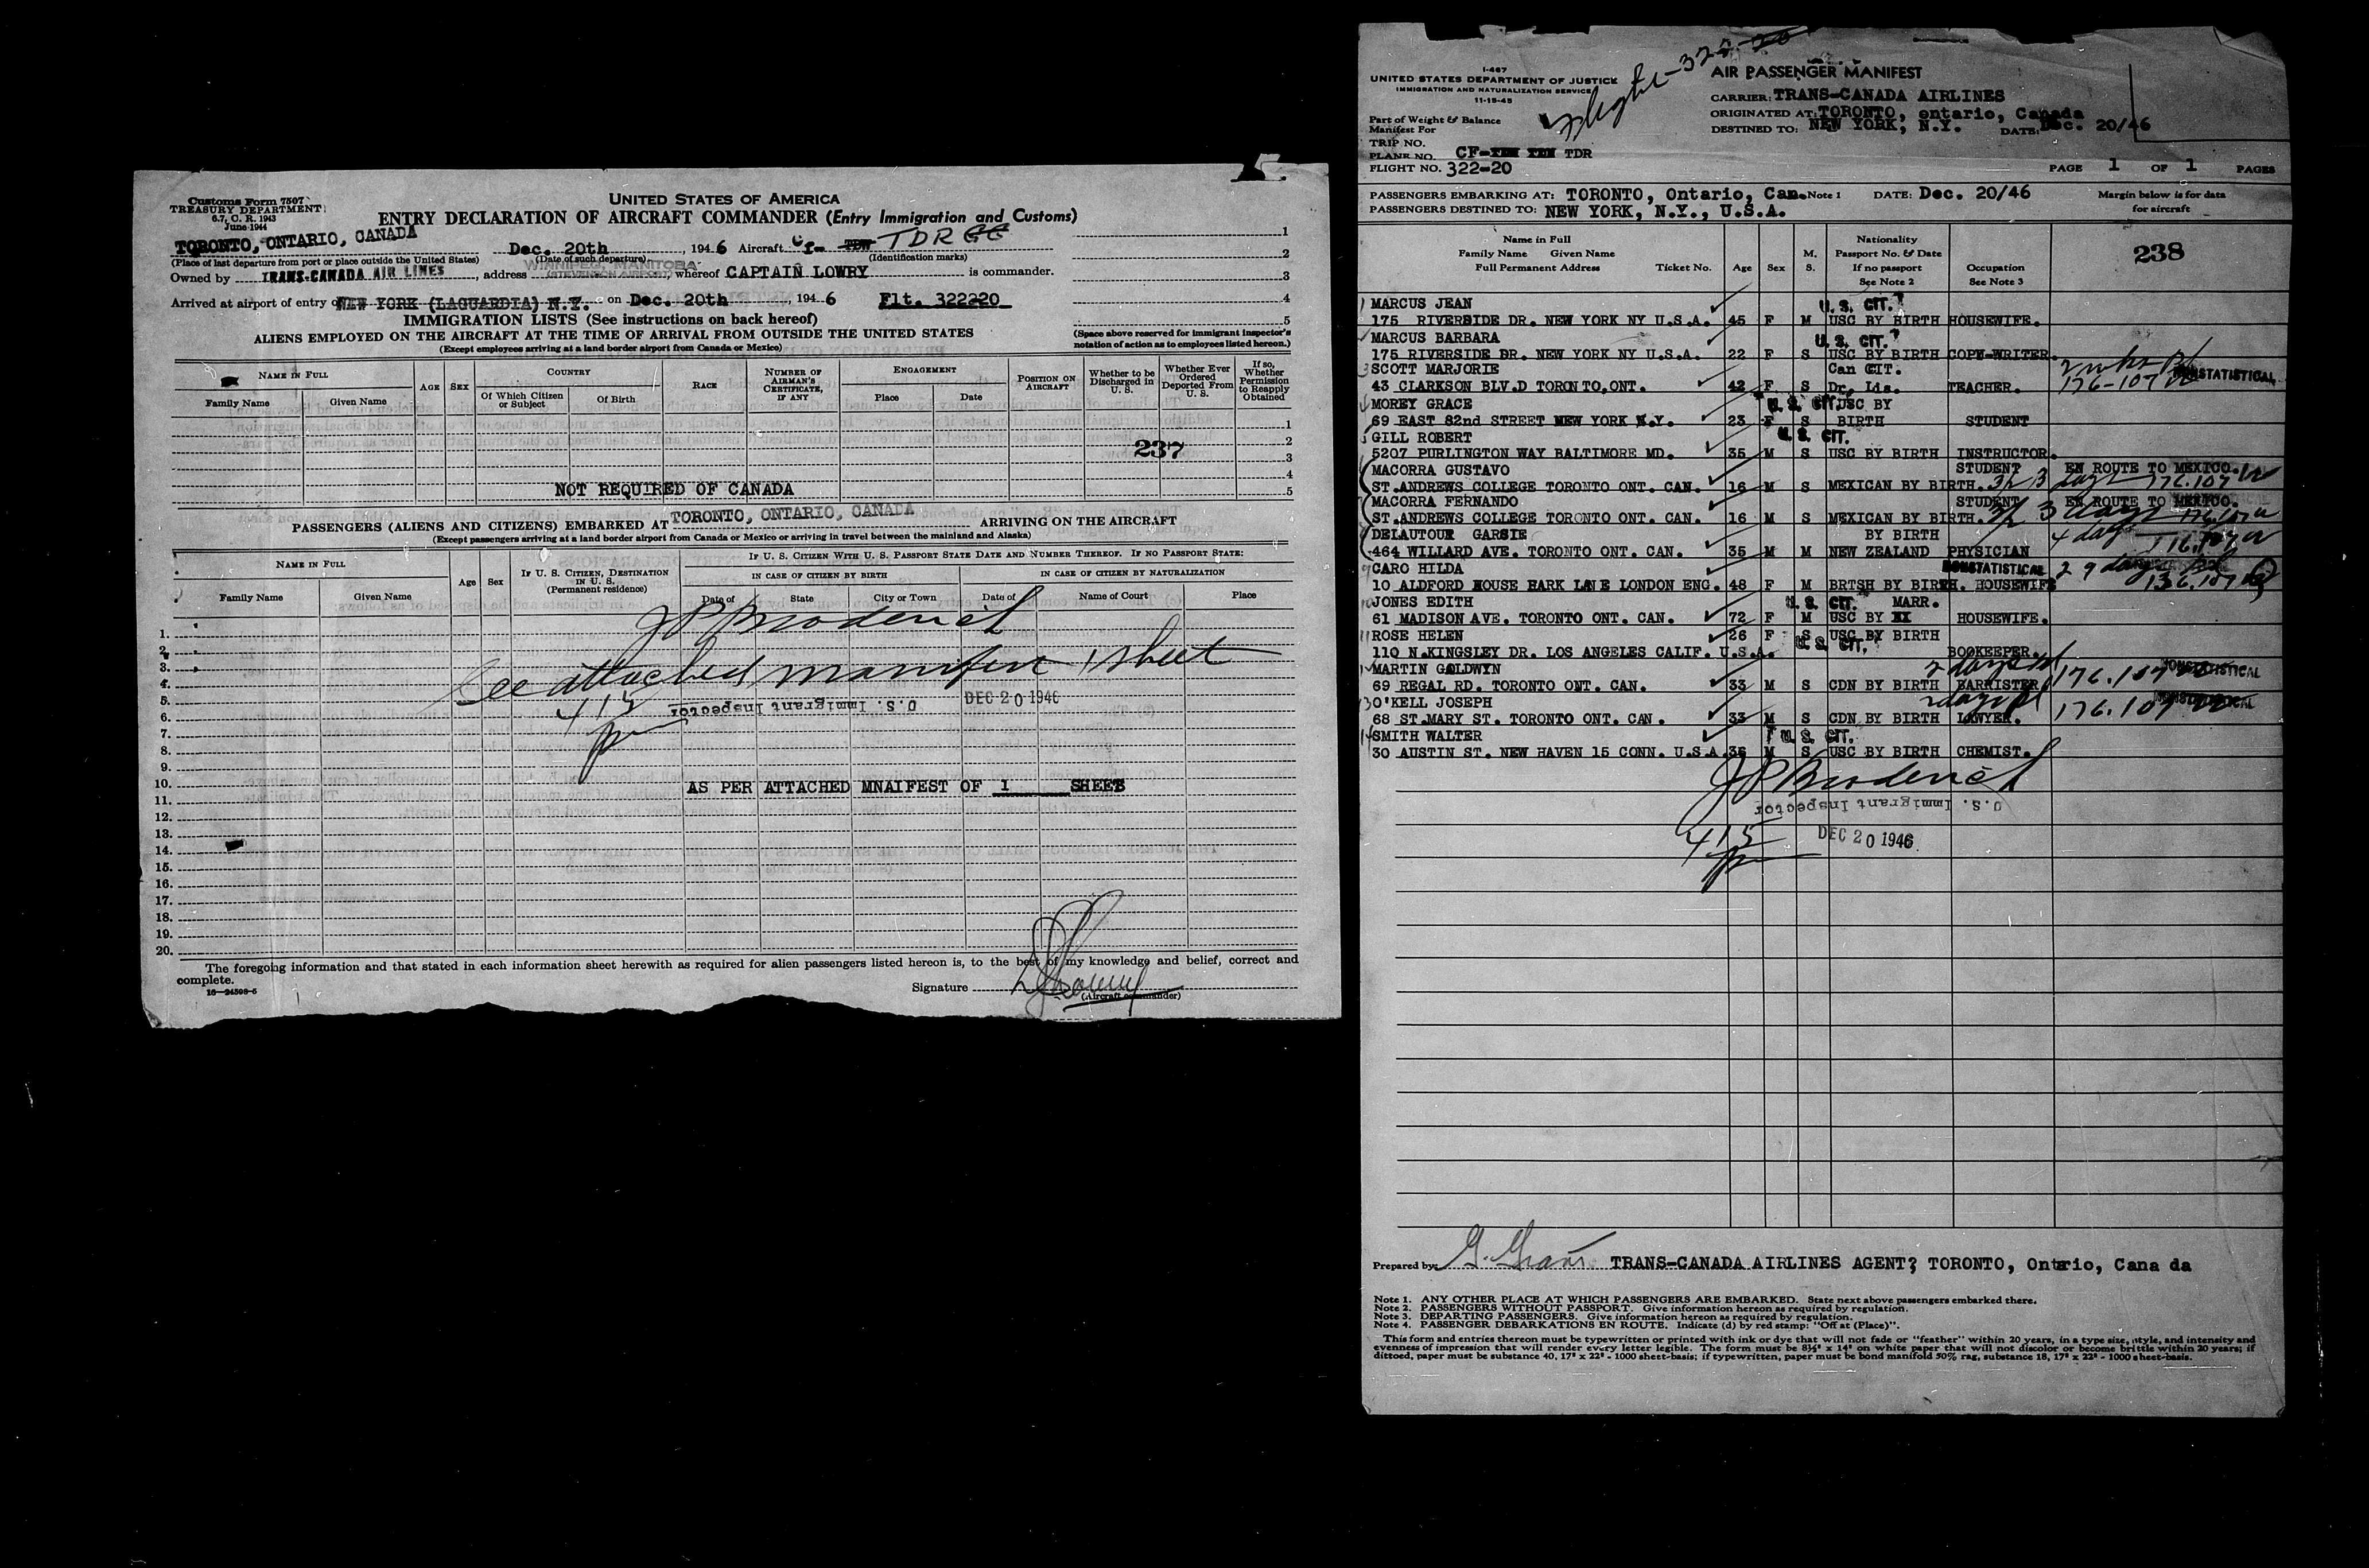 Customs Form 7507
TREASURY DEPARTMENT
6.7, C. R. 1943
June 1944
UNITED STATES OF AMERICA
ENTRY DECLARATION OF AIRCRAFT COMMANDER (Entry Immigration and Customs)
TORONTO, ONTARIO, CANADA Dec. 20th, 1946 Aircraft Cf- TDW TDR
(Place of last departure from port or place outside the United States) (Date of such departure) (Identification marks)
WINNIPEG, MANITOBA
Owned by TRANS-CANADA AIR LINES, address (STEVENSON AIRPORT), whereof CAPTAIN LOWRY is commander.
Arrived at airport of entry of NEW YORK (LAGUARDIA) N.Y. on Dec. 20th, 1946 Flt. 322220
1
2
3
4
5
IMMIGRATION LISTS (See instructions on back hereof)
ALIENS EMPLOYED ON THE AIRCRAFT AT THE TIME OF ARRIVAL FROM OUTSIDE THE UNITED STATES
(Except employees arriving at a land border airport from Canada or Mexico)
(Space above reserved for immigrant inspector's notation of action as to employees listed hereon.)
NAME IN FULL
Family Name Given Name
AGE SEX
COUNTRY
Of Which Citizen or Subject Of Birth
RACE
NUMBER OF AIRMAN'S CERTIFICATE, IF ANY
ENGAGEMENT
Place Date
POSITION ON AIRCRAFT
Whether to be Discharged in U. S.
Whether Ever Ordered Deported From U. S.
If so, Whether Permission to Reapply Obtained
1
2
237
3
4
NOT REQUIRED OF CANADA
5
PASSENGERS (ALIENS AND CITIZENS) EMBARKED AT TORONTO, ONTARIO, CANADA ARRIVING ON THE AIRCRAFT
(Except passengers arriving at a land border airport from Canada or Mexico or arriving in travel between the mainland and Alaska)
NAME IN FULL
Family Name Given Name
Age Sex
IF U. S. CITIZEN, DESTINATION IN U. S. (Permanent residence)
IF U. S. CITIZEN WITH U. S. PASSPORT STATE DATE AND NUMBER THEREOF. IF NO PASSPORT STATE:
IN CASE OF CITIZEN BY BIRTH IN CASE OF CITIZEN BY NATURALIZATION
Date of State City or Town Date of Name of Court Place
J P Broderick
1.
2.
3.
See attached manifest 1 sheet
4.
5.
U.S. Immigrant Inspector DEC 20 1946
415 pm
6.
7.
8.
9.
10. AS PER ATTACHED MNAIFEST OF 1 SHEET
11.
12.
13.
14.
15.
16.
17.
18.
19.
20.
The foregoing information and that stated in each information sheet herewith as required for alien passengers listed hereon is, to the best of my knowledge and belief, correct and complete.
16—24598-5
Signature
(Aircraft commander)
I-467
UNITED STATES DEPARTMENT OF JUSTICE
IMMIGRATION AND NATURALIZATION SERVICE
11-15-45
Flight-322-20
AIR PASSENGER MANIFEST
CARRIER: TRANS-CANADA AIRLINES
ORIGINATED AT: TORONTO, ontario, Canada
DESTINED TO: NEW YORK, N.Y. DATE: Dec. 20/46
Part of Weight & Balance
Manifest For
TRIP NO.
PLANE NO. CF- TDR
FLIGHT NO. 322-20
PAGE 1 OF 1 PAGES
PASSENGERS EMBARKING AT: TORONTO, Ontario, Can. Note 1 DATE: Dec. 20/46
PASSENGERS DESTINED TO: NEW YORK, N.Y., U.S.A.
Margin below is for data for aircraft
Name in Full
Family Name Given Name
Full Permanent Address Ticket No. Age Sex M. S.
Nationality
Passport No. & Date
If no passport
See Note 2
Occupation
See Note 3
238
1 MARCUS JEAN U. S. CIT.
175 RIVERSIDE DR. NEW YORK NY U.S.A. 45 F M USC BY BIRTH HOUSEWIFE.
MARCUS BARBARA U. S. CIT.
175 RIVERSIDE DR. NEW YORK NY U.S.A. 22 F S USC BY BIRTH COPY-WRITER.
3 SCOTT MARJORIE Can CIT. 2 wks
43 CLARKSON BLV.D TORONTO,ONT. 42 F S Dr. Lis. TEACHER. 176-107 NONSTATISTICAL
MOREY GRACE U. S. CIT. USC BY
69 EAST 82nd STREET NEW YORK N.Y. 23 F S BIRTH STUDENT
GILL ROBERT U. S. CIT.
5207 PURLINGTON WAY BALTIMORE MD. 35 M S USC BY BIRTH INSTRUCTOR.
MACORRA GUSTAVO STUDENT EN ROUTE TO MEXICO.
ST.ANDREWS COLLEGE TORONTO ONT. CAN. 16 M S MEXICAN BY BIRTH. 3 days 176.107
MACORRA FERNANDO STUDENT EN ROUTE TO MEXICO.
ST.ANDREWS COLLEGE TORONTO ONT. CAN. 16 M S MEXICAN BY BIRTH. 3 days 176.107
DELAUTOUR GARSIE BY BIRTH 4 days
464 WILLARD AVE. TORONTO ONT. CAN. 35 M M NEW ZEALAND PHYSICIAN 176.107
CARO HILDA NONSTATISTICAL 29 days
10 ALDFORD HOUSE PARK LANE LONDON ENG. 48 F M BRTSH BY BIRTH. HOUSEWIFE 136.107
JONES EDITH U. S. CIT. MARR.
61 MADISON AVE. TORONTO ONT. CAN. 72 F M USC BY XX HOUSEWIFE.
11 ROSE HELEN 26 F S USC BY BIRTH
110 N.KINGSLEY DR. LOS ANGELES CALIF. U.S.A. U. S. CIT. BOOKEEPER.
MARTIN GOLDWYN 2 days
69 REGAL RD. TORONTO ONT. CAN. 33 M S CDN BY BIRTH BARRISTER 176.107 NONSTATISTICAL
13 O'KELL JOSEPH 2 days
68 ST.MARY ST. TORONTO ONT. CAN. 33 M S CDN BY BIRTH LAWYER. 176.107 NONSTATISTICAL
14 SMITH WALTER U. S. CIT.
30 AUSTIN ST. NEW HAVEN 15 CONN. U.S.A. 36 M S USC BY BIRTH CHEMIST.
J P Broderick
U.S. Immigrant Inspector
415 pm DEC 20 1946
Prepared by: TRANS-CANADA AIRLINES AGENT? TORONTO, Ontario, Cana da
Note 1. ANY OTHER PLACE AT WHICH PASSENGERS ARE EMBARKED. State next above passengers embarked there.
Note 2. PASSENGERS WITHOUT PASSPORT. Give information hereon as required by regulation.
Note 3. DEPARTING PASSENGERS. Give information hereon as required by regulation.
Note 4. PASSENGER DEBARKATIONS EN ROUTE. Indicate (d) by red stamp: "Off at (Place)".
This form and entries thereon must be typewritten or printed with ink or dye that will not fade or "feather" within 20 years, in a type size, style, and intensity and
evenness of impression that will render every letter legible. The form must be 8½" x 14" on white paper that will not discolor or become brittle within 20 years; if
dittoed, paper must be substance 40, 17" x 22" - 1000 sheet-basis; if typewritten, paper must be bond manifold 50% rag, substance 18, 17" x 22" - 1000 sheet-basis.